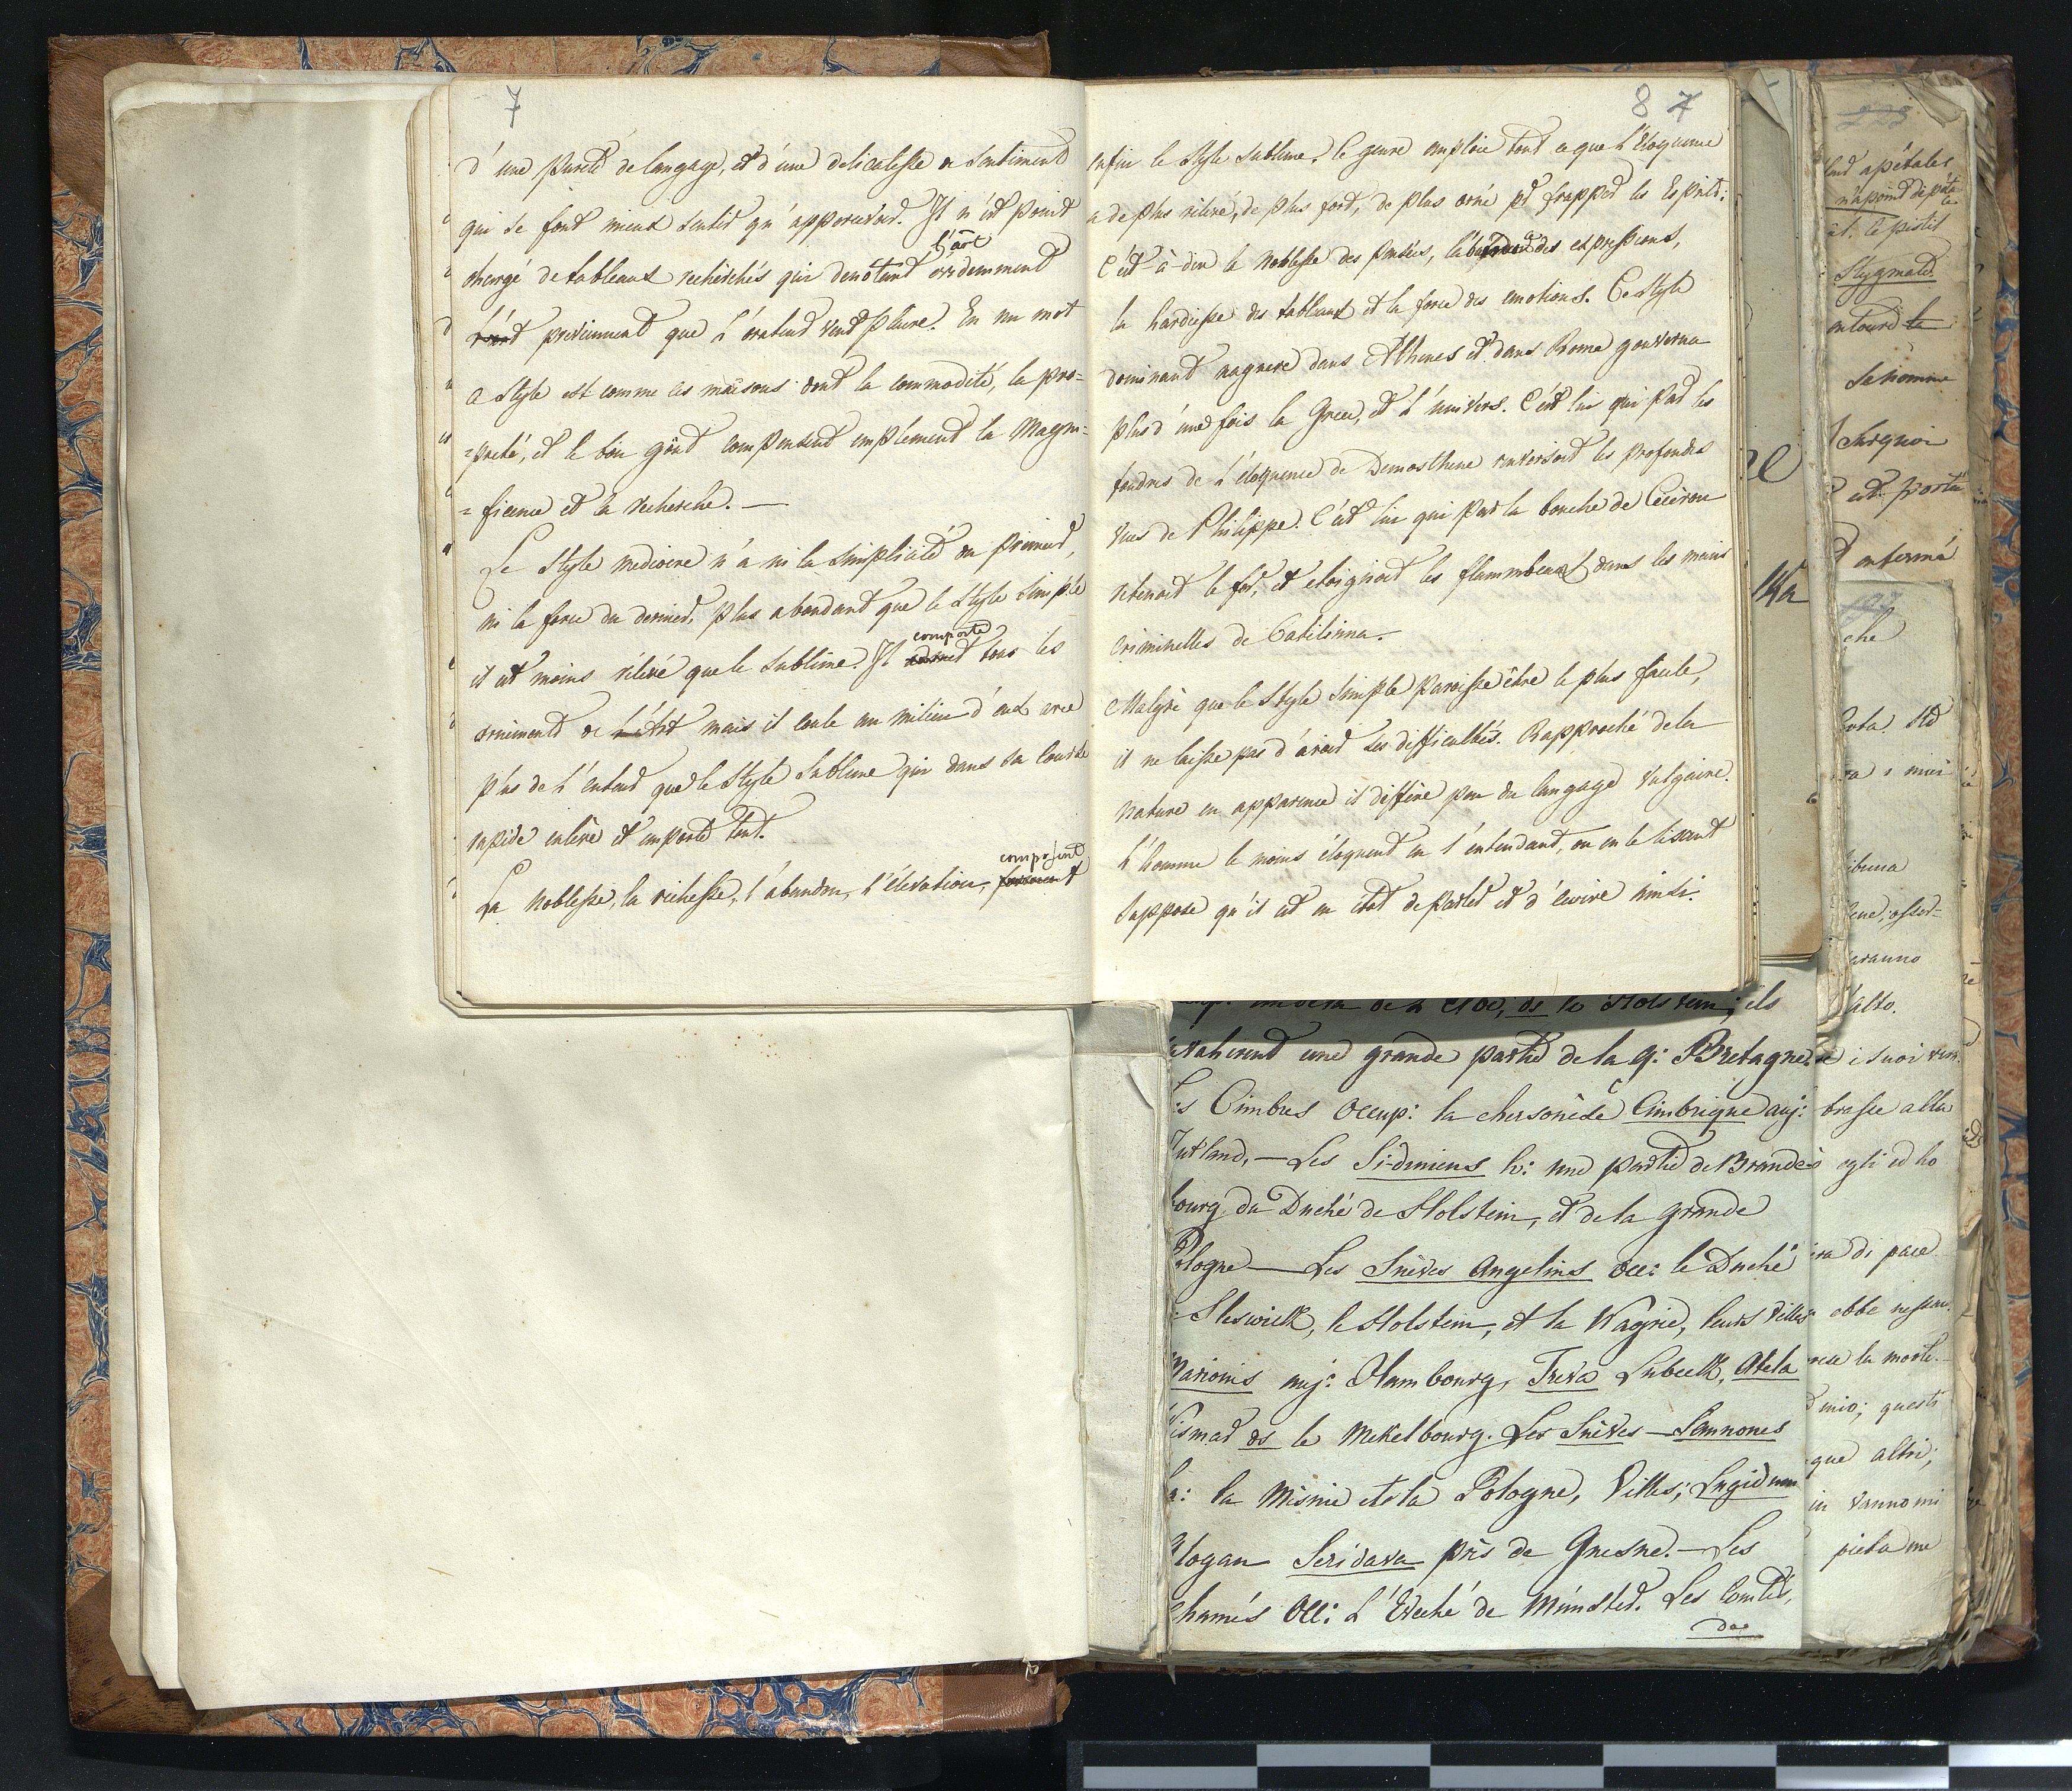 7
d'une pureté de langage, et d'une delicatesse de sentiment
qui se font mieux sentir qu'appercevoir. Il n'est point
l'art
chargé de tableaux recherchés qui denôtent évidemment
et previennent que l'orateur veut plaire. En un mot
ce style est comme ces maisons dont la commodité, la pro=
=preté, et le bon goût compensent amplement la Magni=
=ficence et la recherche. —
Le style mediocre n'a ni la simplicité du premier,
ni la force du dernier, plus abondant que le style simple
composte
il est moins élévé que le sublime. Il admet tous les
ornements de l'Art mais il coule au milieu d'eux avec
plus de lenteur que le style sublime qui dans sa course
rapide enlêve et emporte tout.
La noblesse, la richesse, l'abandon, l'élévation, forment
composent
8 7
enfin le style sublime. Ce genre emploie tout ce que l'Eloquence
a de plus rélévé, de plus fort, de plus orné pr frapper les Esprits:
C'est à dire la noblesse des pensées, des expressions,
la hardiesse des tableaux et la force des emotions. Ce style
dominant naguere dans Athenes et dans Rome gouverna
plus d'une fois la Grece, et l'univers. C'est lui qui par les
foudres de l'éloquence de Demosthene renversoit les profondes
vues de Philippe. C'est lui qui par la bouche de Cicéron
retenoit le fer, et eloignoit les flambeaux dans les mains
criminelles de Catilinna.
Malgré que le style simple paroisse être le plus facile,
il ne laisse pas d'avoir ses difficultés. Rapproché de la
nature en apparence il diffère peu du langage vulgaire.
L'homme le moins éloquent en l'entendant, ou en le lisant
suppose qu'il est en état de parler et d'écrire ainsi.
de la de, ds le Holstein; ils
une grande partie de la g: Bretagne.
Cimbres Occup: la chersonèse Cimbrique auj:
Jutland, — Les Sidiniens h: une partie de Brande=
bourg du Duché de Holstein, et de la grande
Pologne — Les Suèves Angelins Occ: le Duché
Sleswick, le Holstein, et la Wagrie, leurs villes
Marionis auj: Hambourg, Treva Lubeck, Atela
Vismar ds le Mekelbourg. Les Suèves — Semnones
la Misnie et la Pologne, Villes; Lugidunum
Glogau Seridava près de Gnesne. — Les
Chamès Occ: l'Evêché de Munster. Les Comtés,
apétales
n'a point de
et le pistil
Stygmate
entouré la
Se nomme
Surquoi
est porté
enfermé
che
alto.
i suoi
alla
egli ed ho
di pace
ebbe
la morte.
mio; questi
que altri;
in vanno mi
pieta me